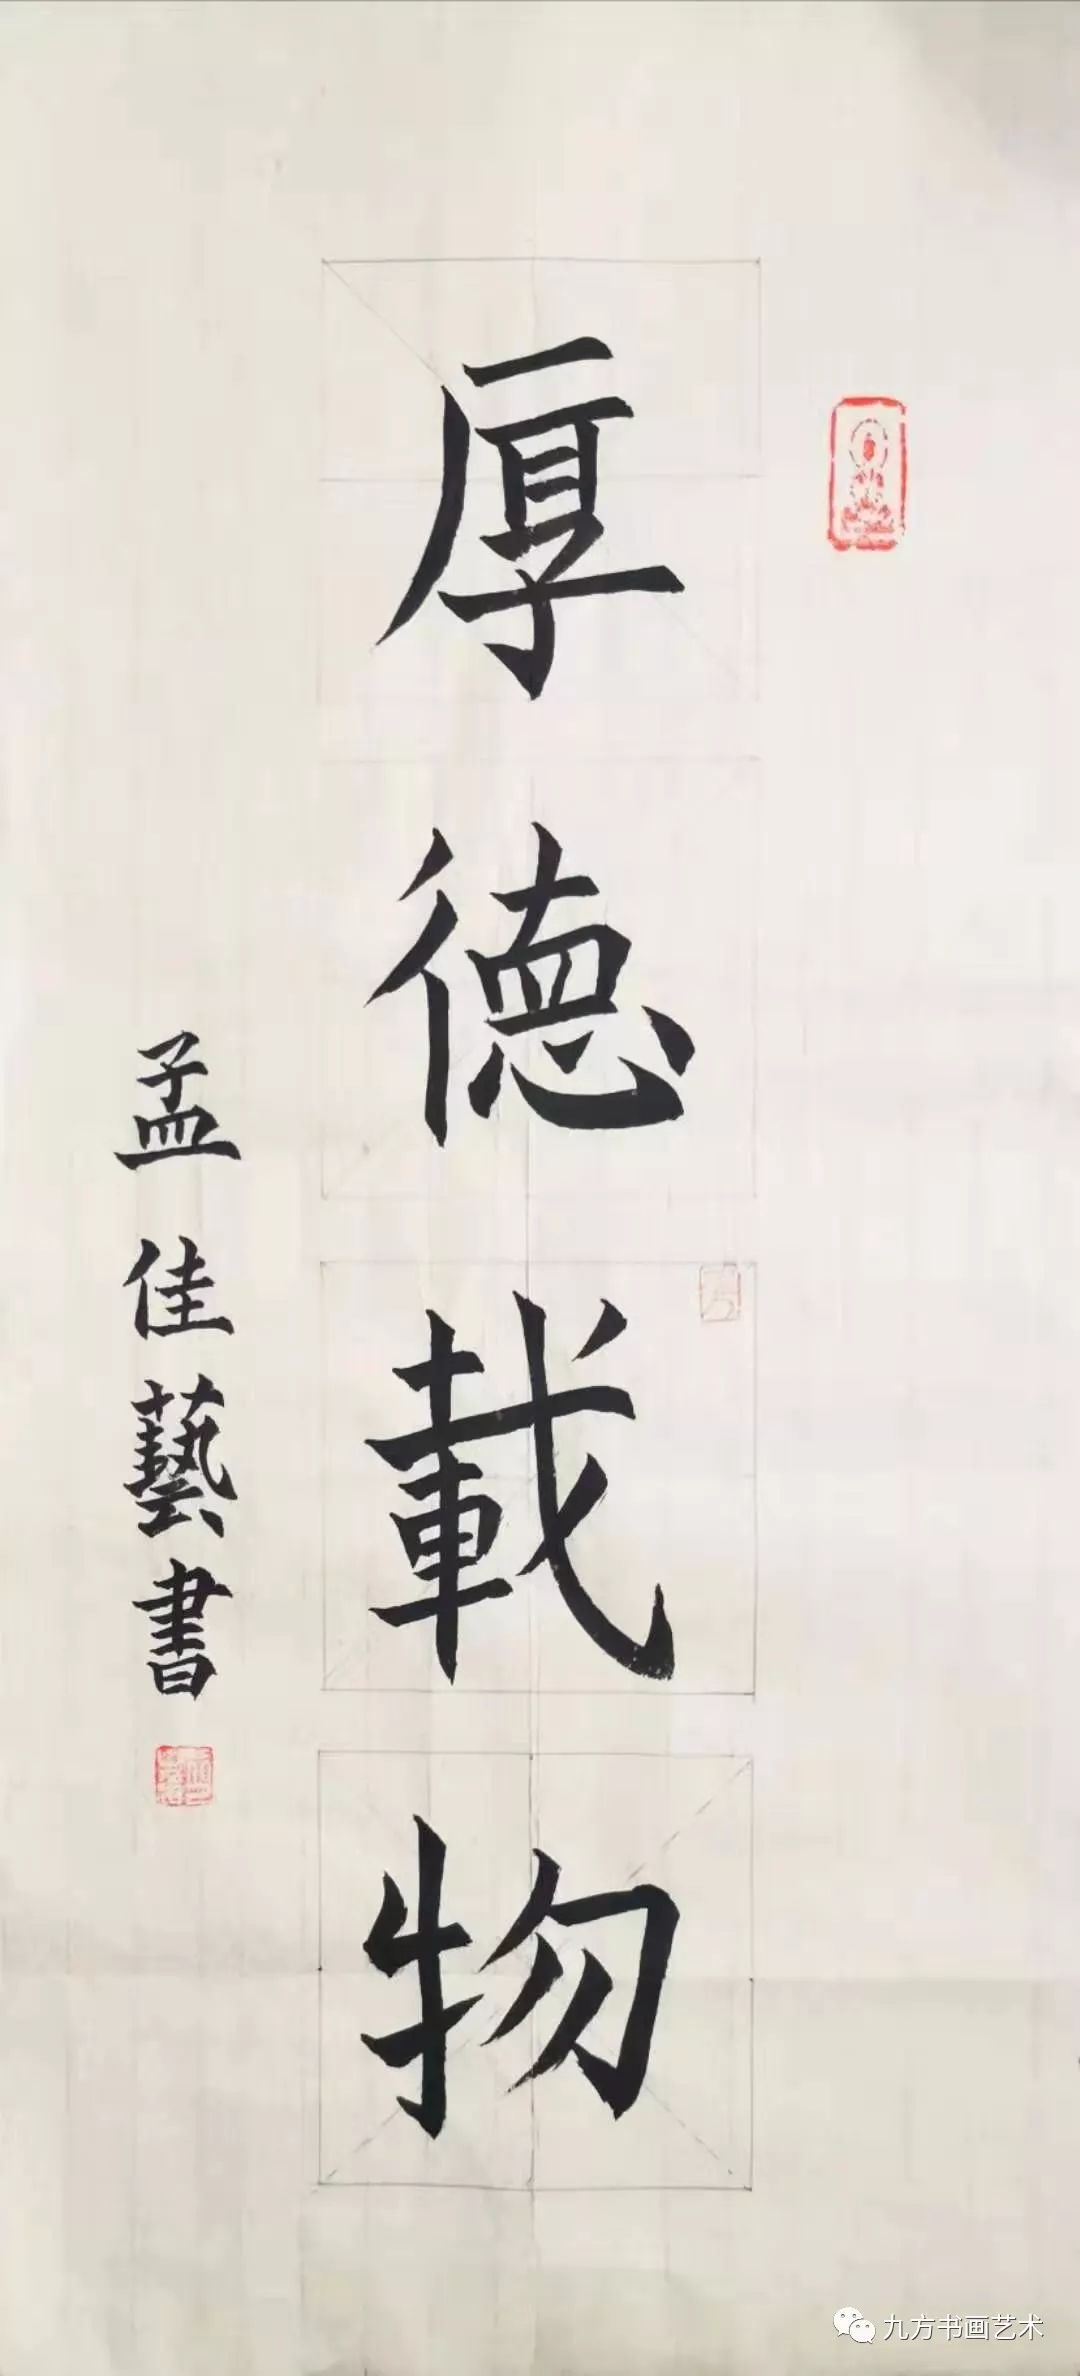 厚德載物
孟佳藝書
九方书画艺术